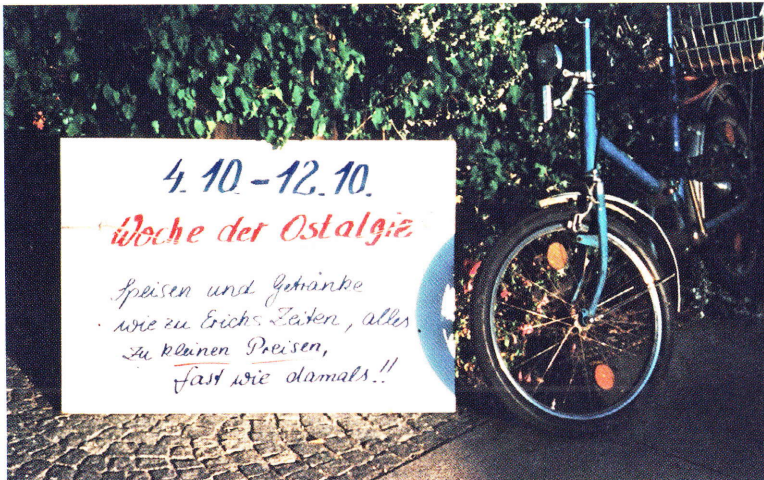 4.10.-12.10.
Woche der Ostalgie
Speisen und Getränke
wie zu Erichs Zeiten, alles
zu kleinen Preisen,
fast wie damals!!